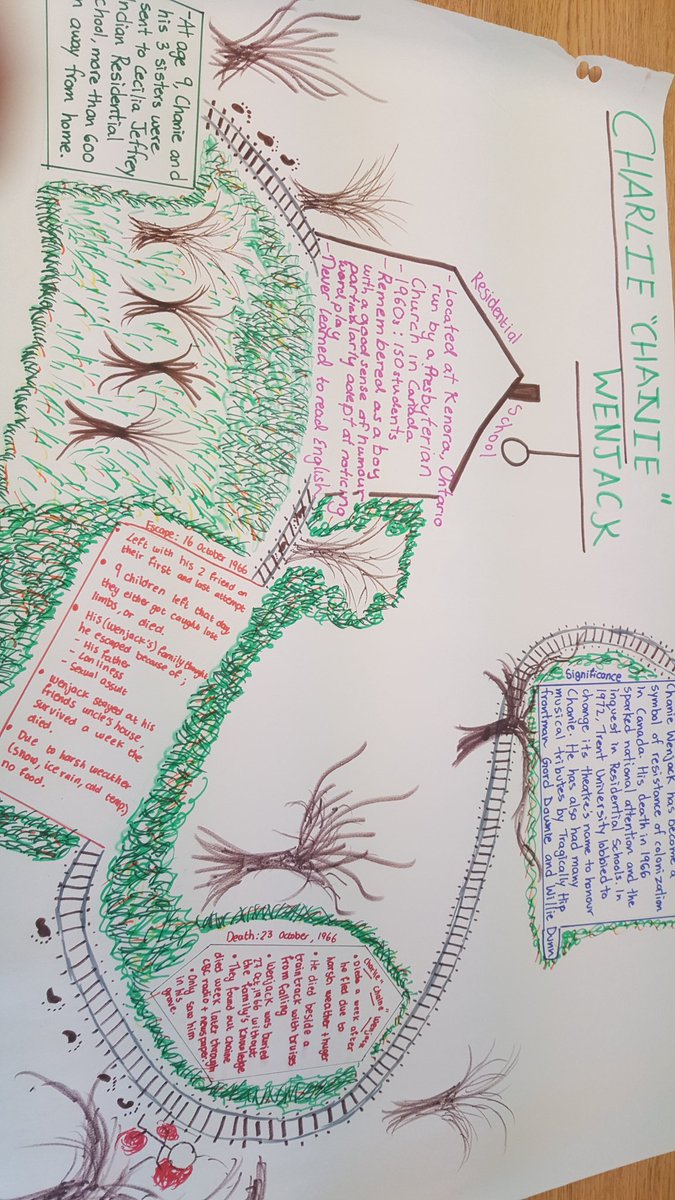 CHARLIE "CHANIE"
WENJACK
-At age 9, Chanie and
his 3 sisters were
sent to Cecilia Jeffrey
Indian Residential
chool, more than 600
away from home.
Residential School
-Located at Kenora, Ontario
run by a Presbyterian
Church in Canada
- 1960s: 150 students
- Remembered as a boy
with a good sense of humour
particularly adept at noticing
word play
-Never learned to read English
Chanie Wenjack has become a
symbol of resistance of colonization
in Canada. His death in 1966
sparked national attention and the
inquest in Residential Schools. In
1972, Trent University lobbied to
change its theatre's name to honour
Chanie. He has also had many
musical tributes by Tragically Hip
frontman Gord Downie and Willie Dunn
Significance
Escape: 16 October 1966
• Left with his 2 friend on
their first and last attempt
• 9 children left that day
they either got caught, lost
limbs or died.
• His (Wenjack's) family thought
he escaped because of;
- His father
- Lonliness
- Sexual assult
• Wenjack stayed at his
friends uncle's house,
survived a week the
died.
• Due to harsh weather
(snow, ice rain, cold temp,)
no food.
Death: 23 October, 1966
Charlie "Chanie" Wenjack
• Died a week after
he fled due to
harsh weather + huger
• He died beside a
train track with bruises
from falling
• Wenjack was buried
27 Oct, 1966 without
the family's knowledge
• They found out Chanie
died week later through
CBC radio + newspaper
• Only saw him
in his
grave